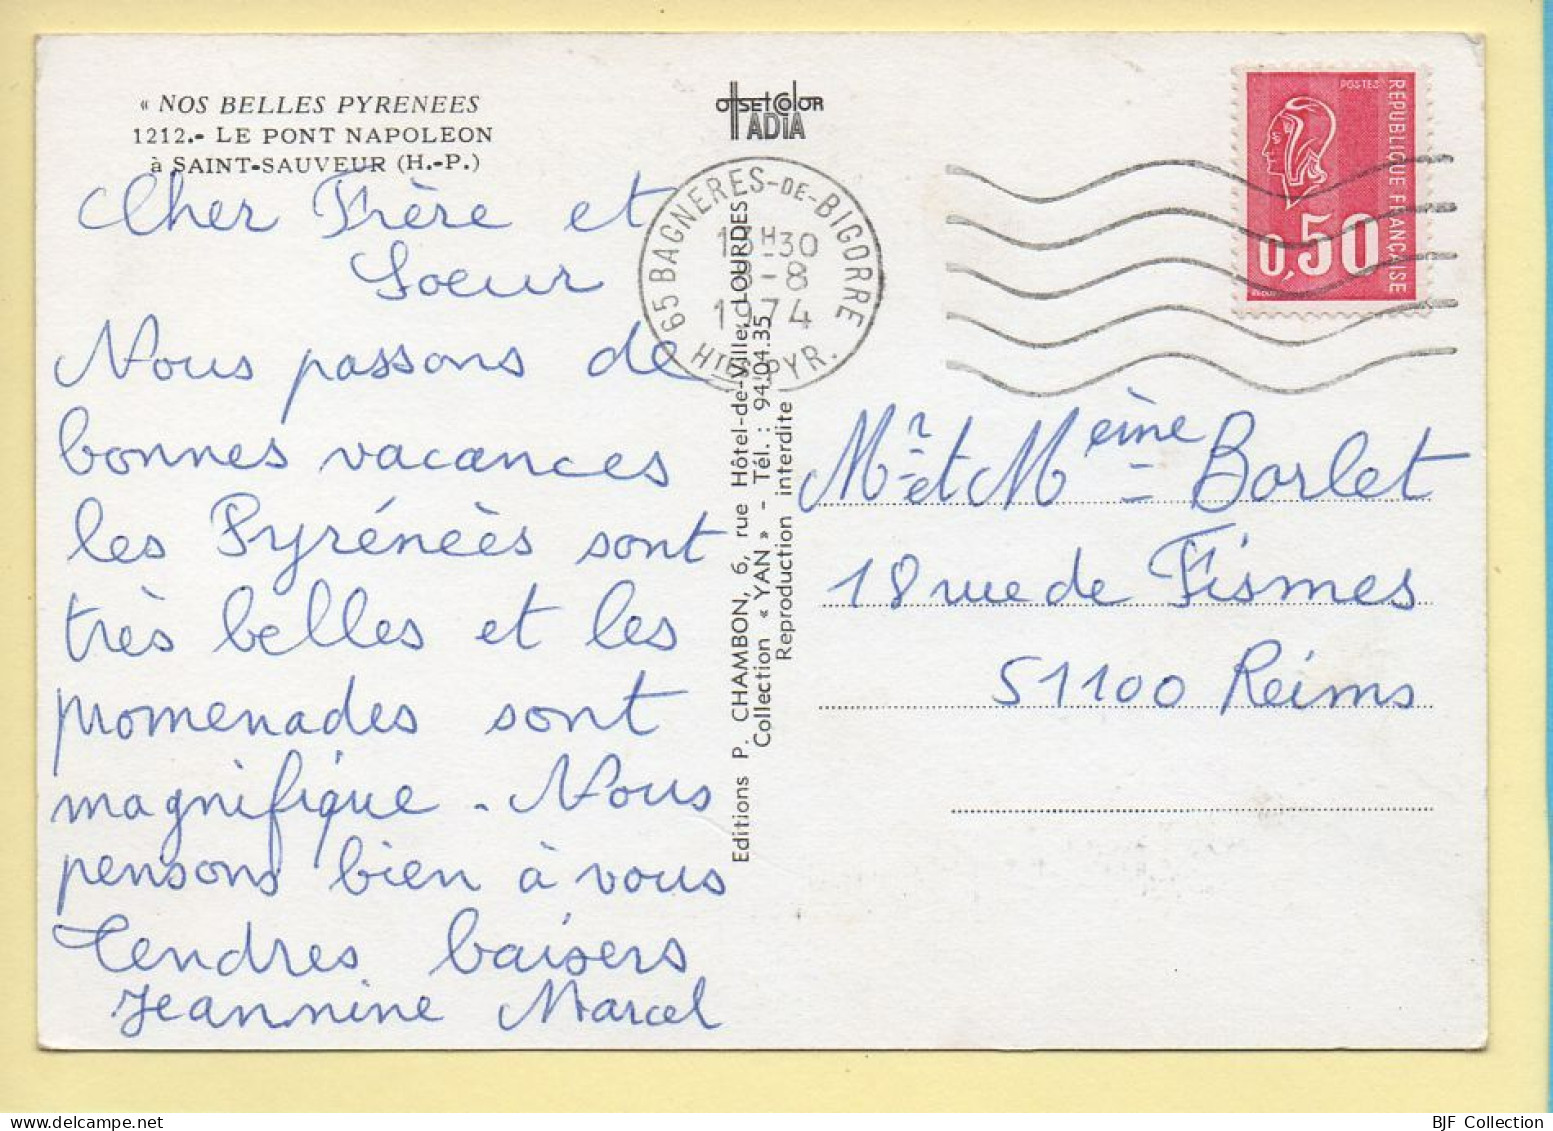 « NOS BELLES PYRENEES
1212.- LE PONT NAPOLEON
à SAINT-SAUVEUR (H.-P.)
Cher Frère et
Soeur
Nous passons de
bonnes vacances
les Pyrénéès sont
très belles et les
promenades sont
magnifique - Nous
pensons bien à vous
Tendres baisers
Jeannine Marcel
OffSET COlOR
TADIA
65 BAGNERES-DE-BIGORRE
13H30
8-8
1974
HTES PYR.
Editions P. CHAMBON, 6, rue Hôtel-de-Ville, LOURDES
Collection « YAN » - Tél. : 94.04.35
Reproduction interdite
POSTES
REPUBLIQUE FRANÇAISE
0,50
Mr et Meine Borlet
18 rue de Fismes
51100 Reims
BJF Collection